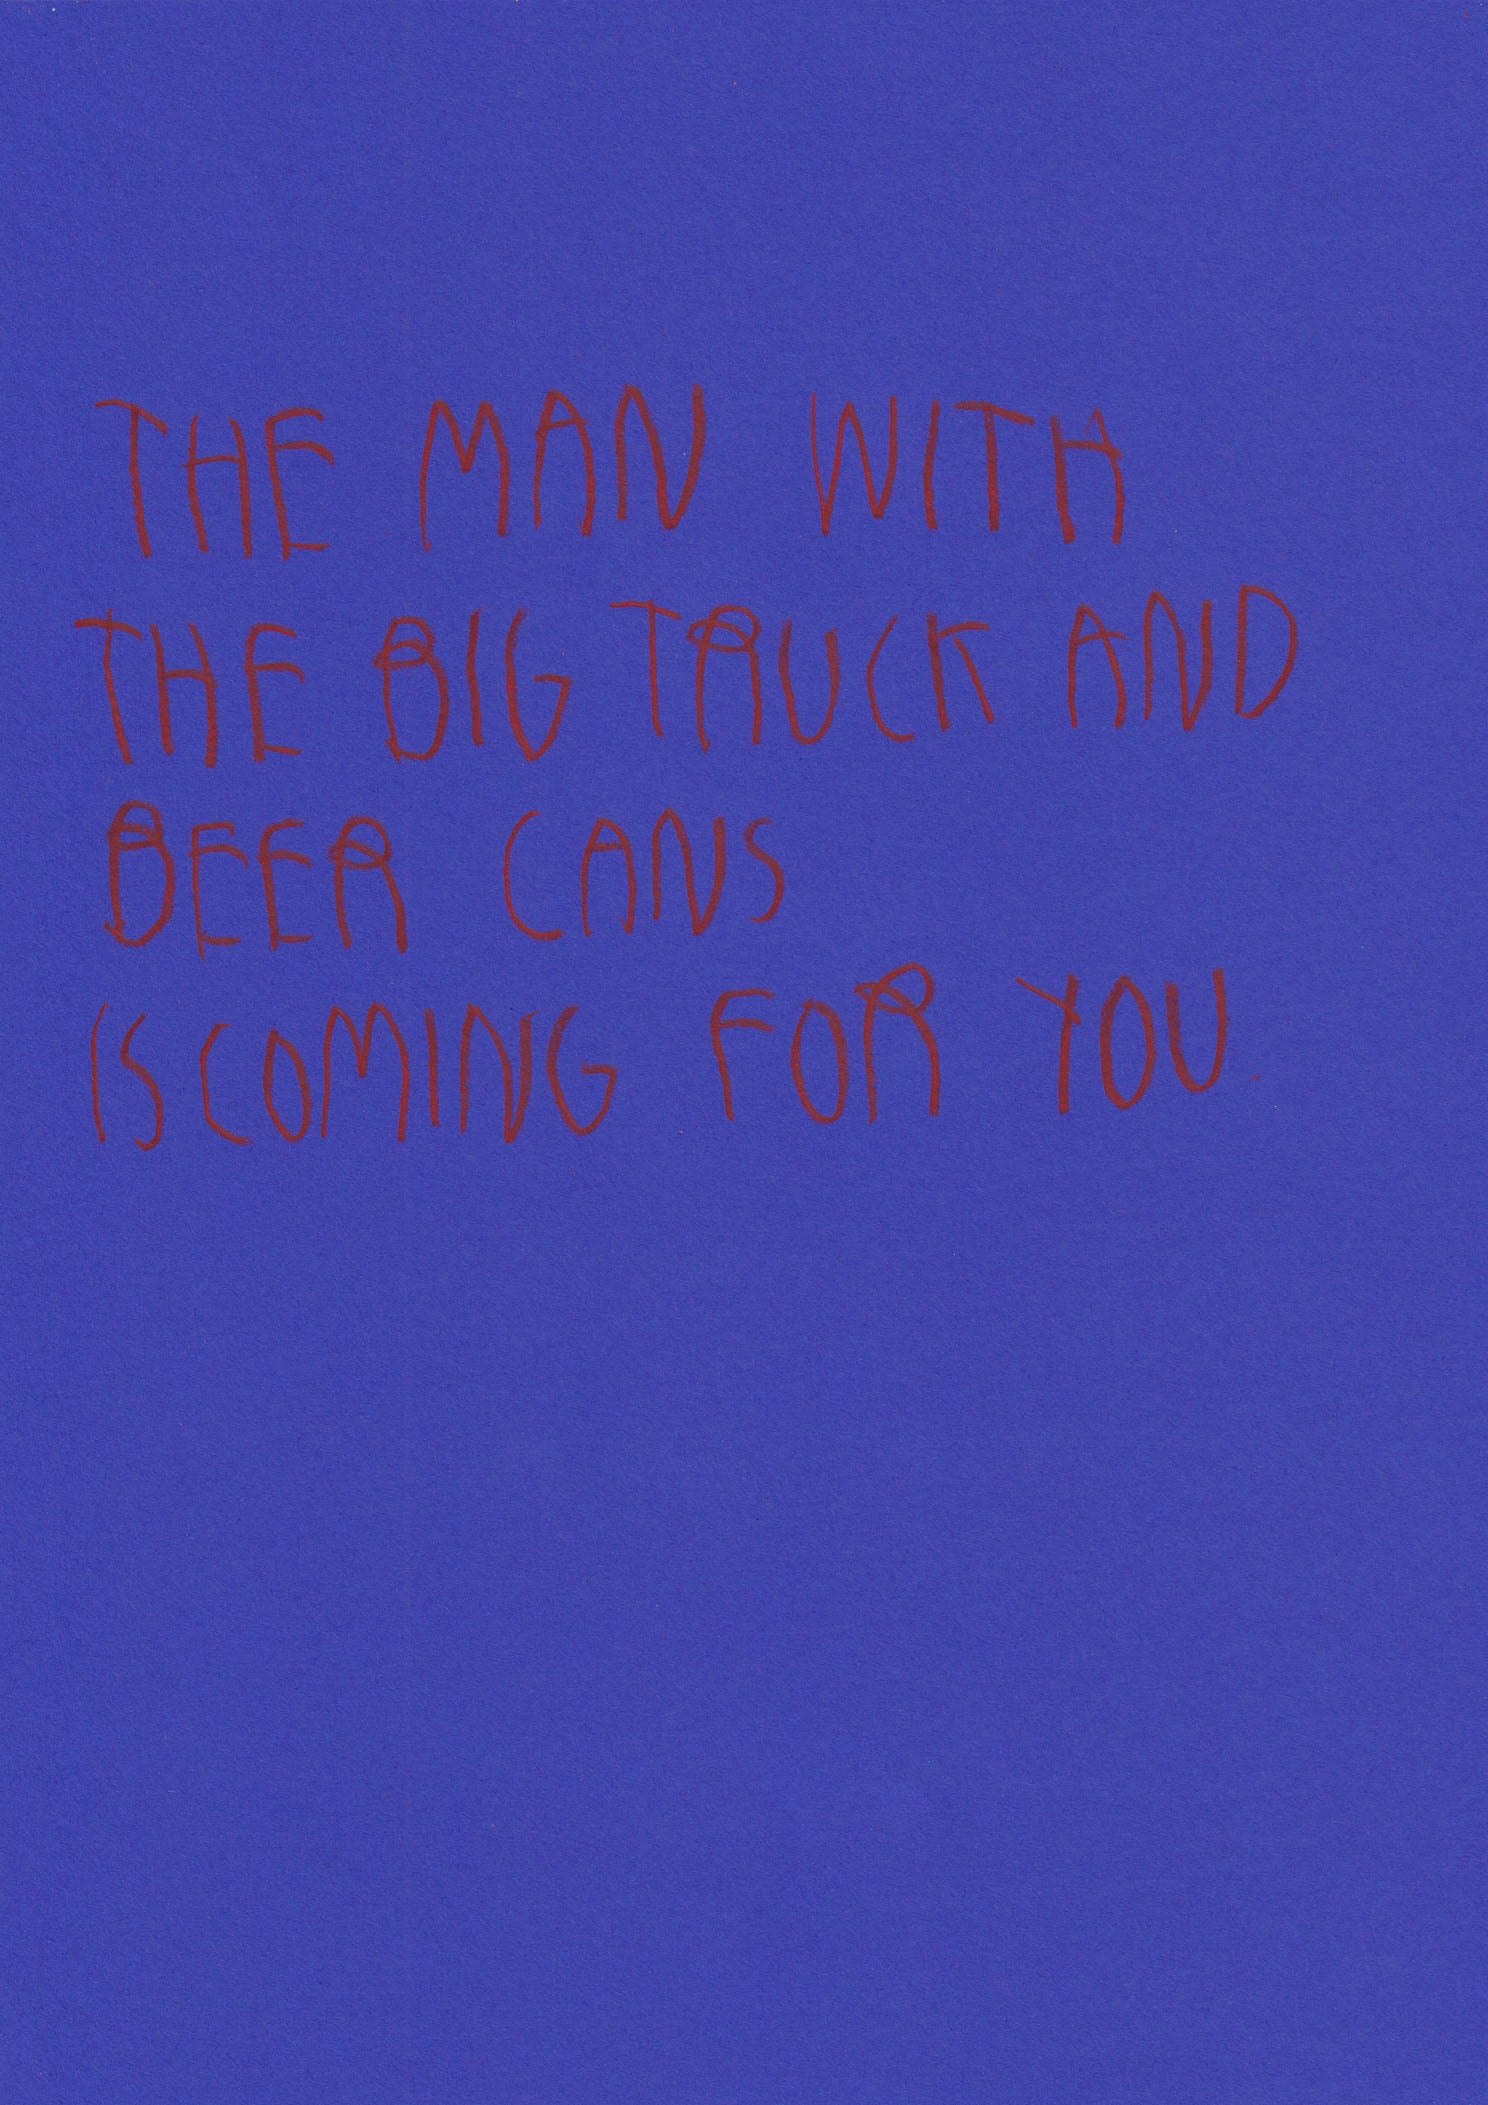 THE MAN WITH
THE BIG TRUCK AND
BEER CANS
IS COMING FOR YOU.